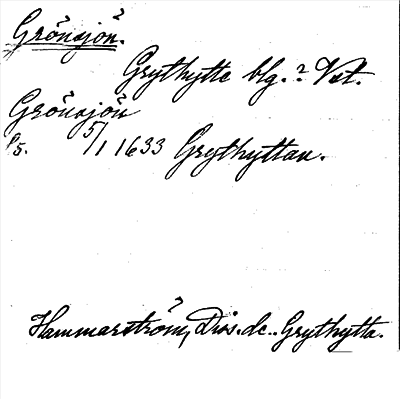 Grönsjön.
Grythytte blg.? Vst.
Grönsjön
5/1 1633 Grythyttan.
Hammarström, Diss. de Grythytta.